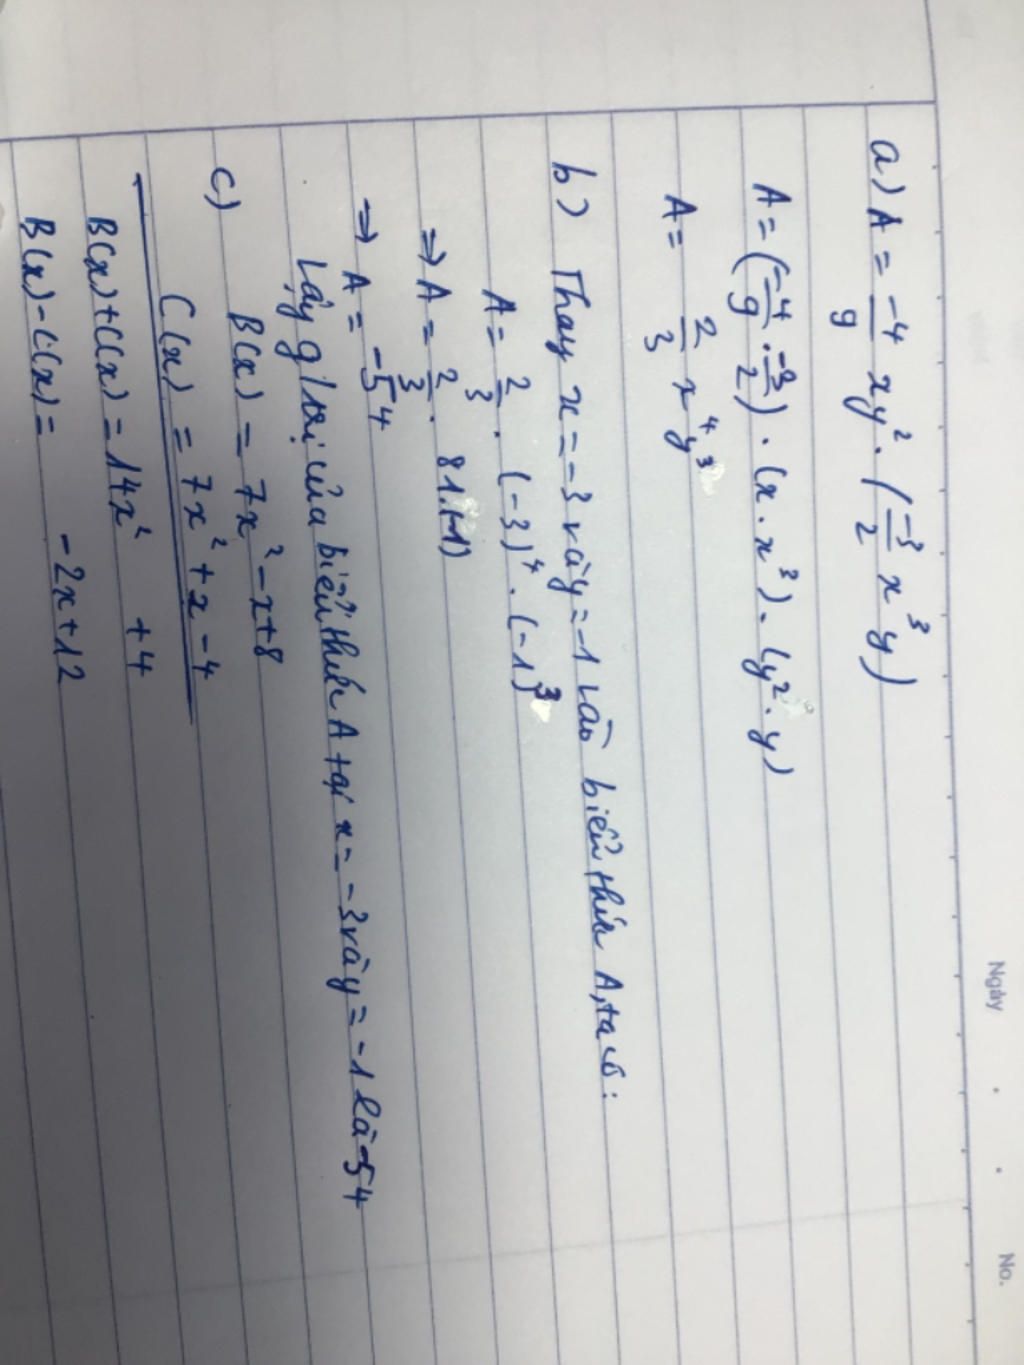 Ngày . . No.
a) A = -4/9 xy². (-3/2 x³y)
A = (-4/9 . -3/2) . (x . x³) . (y² . y)
A = 2/3 x⁴y³
b) Thay x = -3 và y = -1 vào biểu thức A, ta có :
A = 2/3 . (-3)⁴ . (-1)³
⇒ A = 2/3 . 81.(-1)
⇒ A = -54
Vậy g/trị của biểu thức A tại x = -3 và y = -1 là -54
c) B(x) = 7x² - x + 8
C(x) = 7x² + x - 4
B(x) + C(x) = 14x² + 4
B(x) - C(x) = - 2x + 12